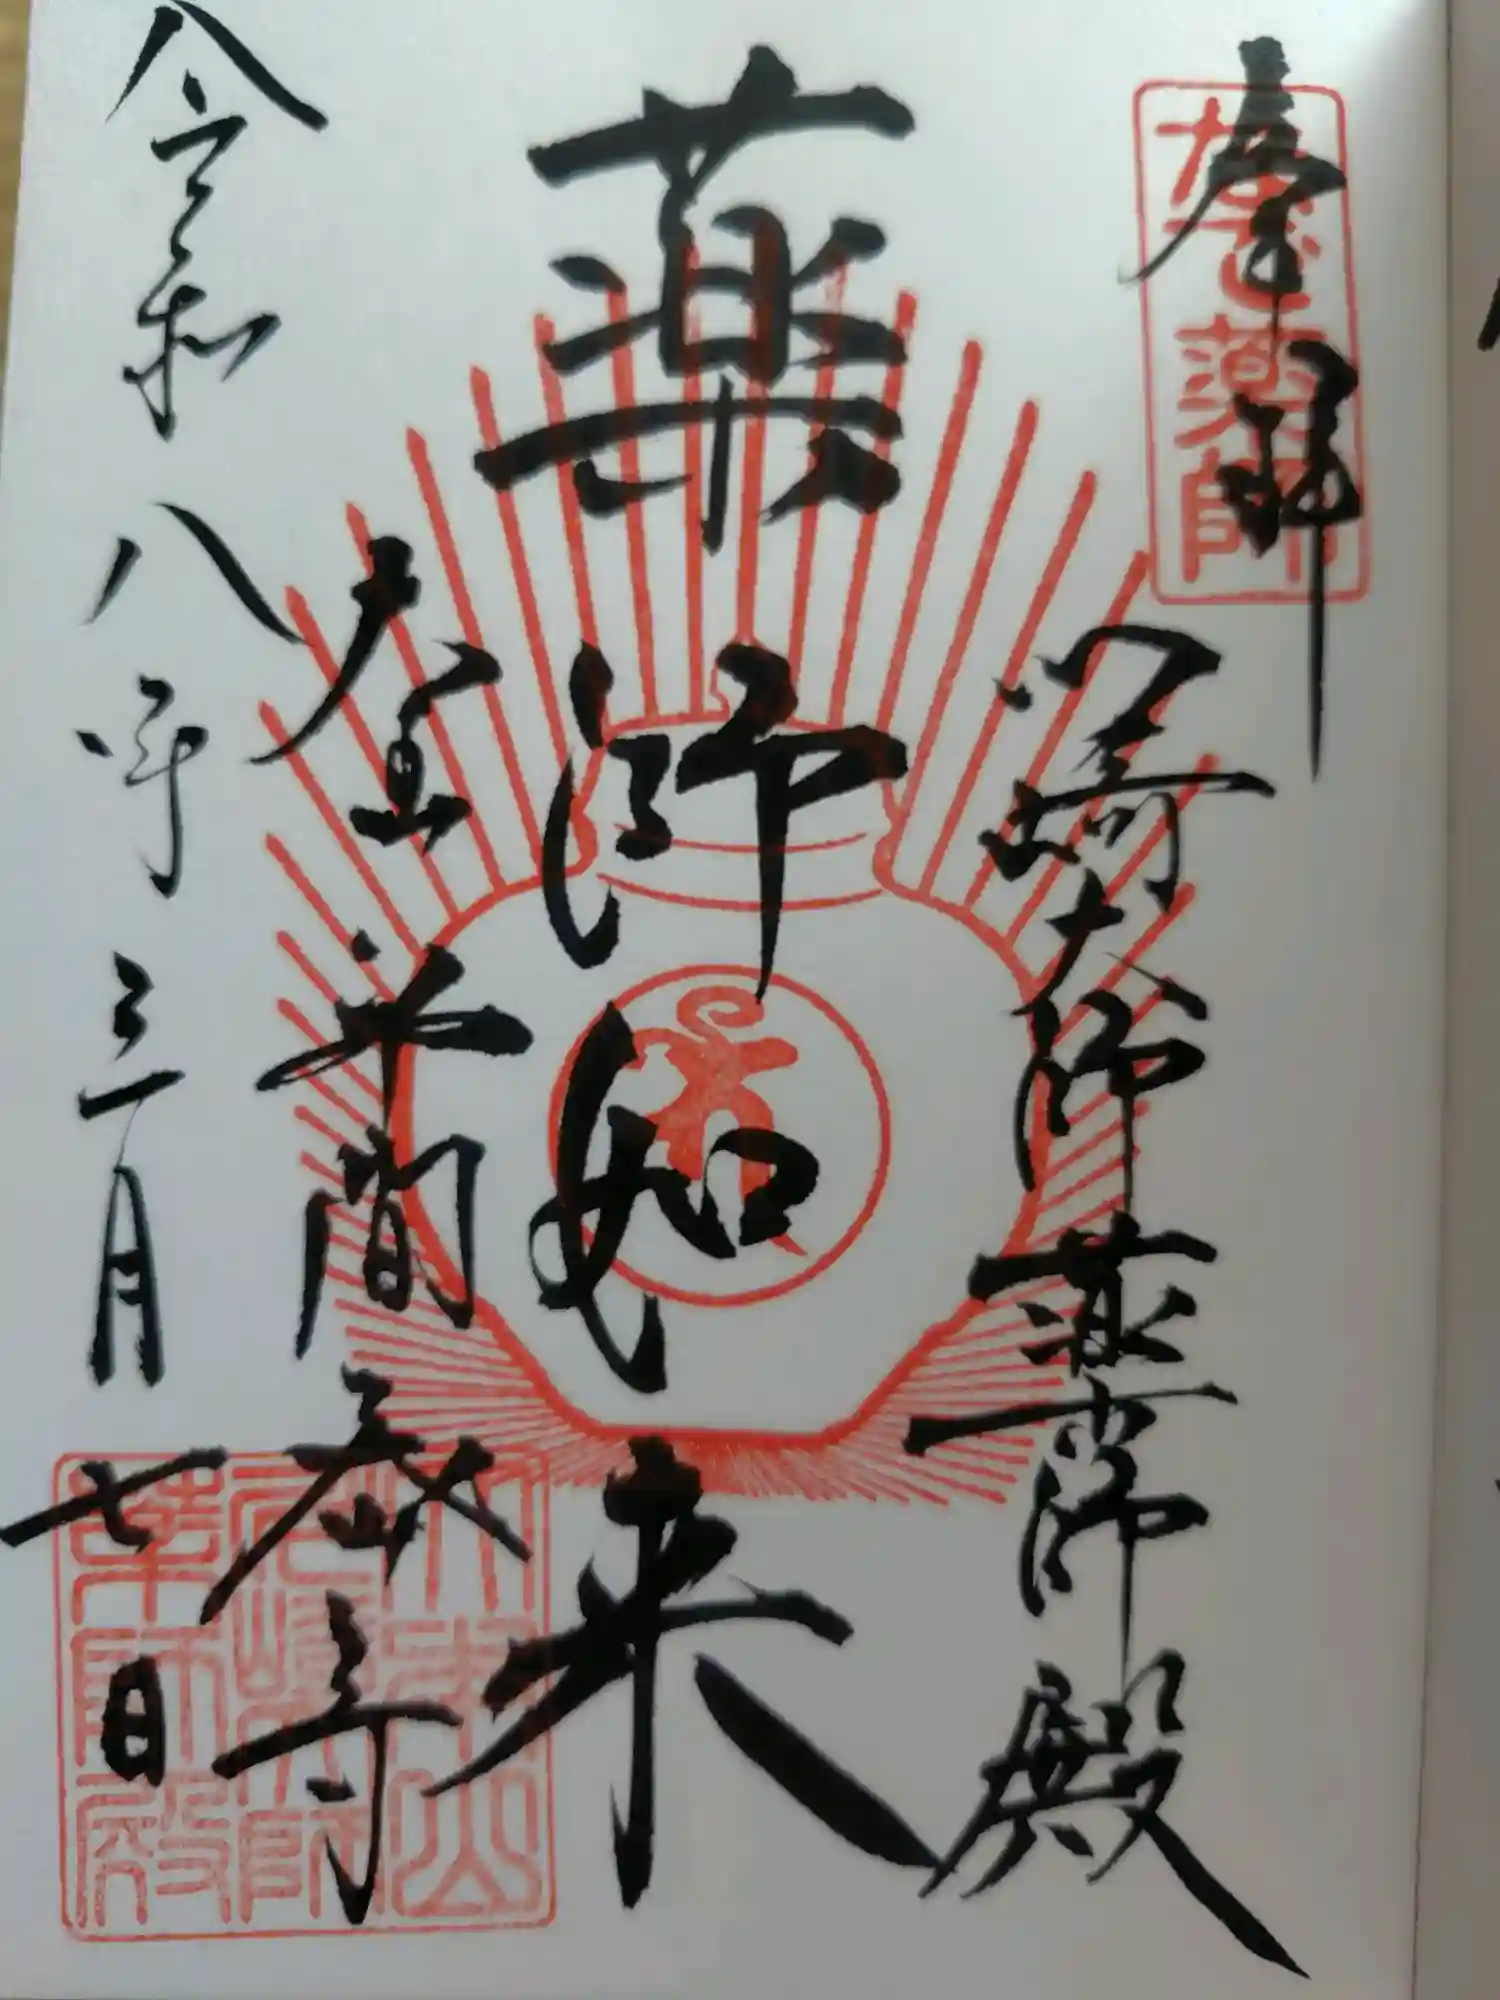 奉拝
なで薬師
川崎大師薬師殿
薬師如来
平間
寺
令和八年三月七日
大本山
川崎大師
薬師殿